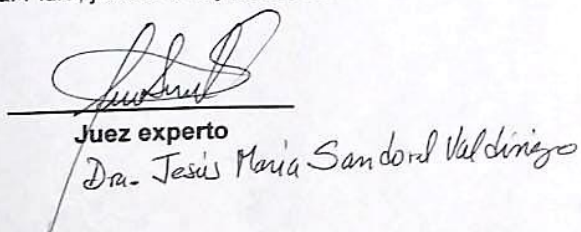 Juez experto
Dra. Jesús María Sandoval Valdiviezo